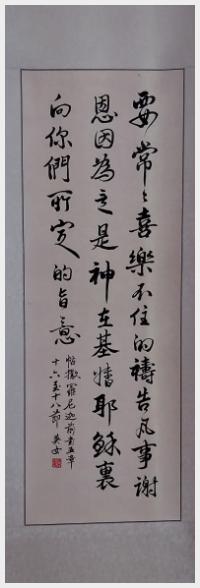 要常々喜樂不住的禱告凡事謝
恩因為這是神在基督耶穌裏
向你們所定的旨意
帖撒羅尼迦前書五章
十六至十八節